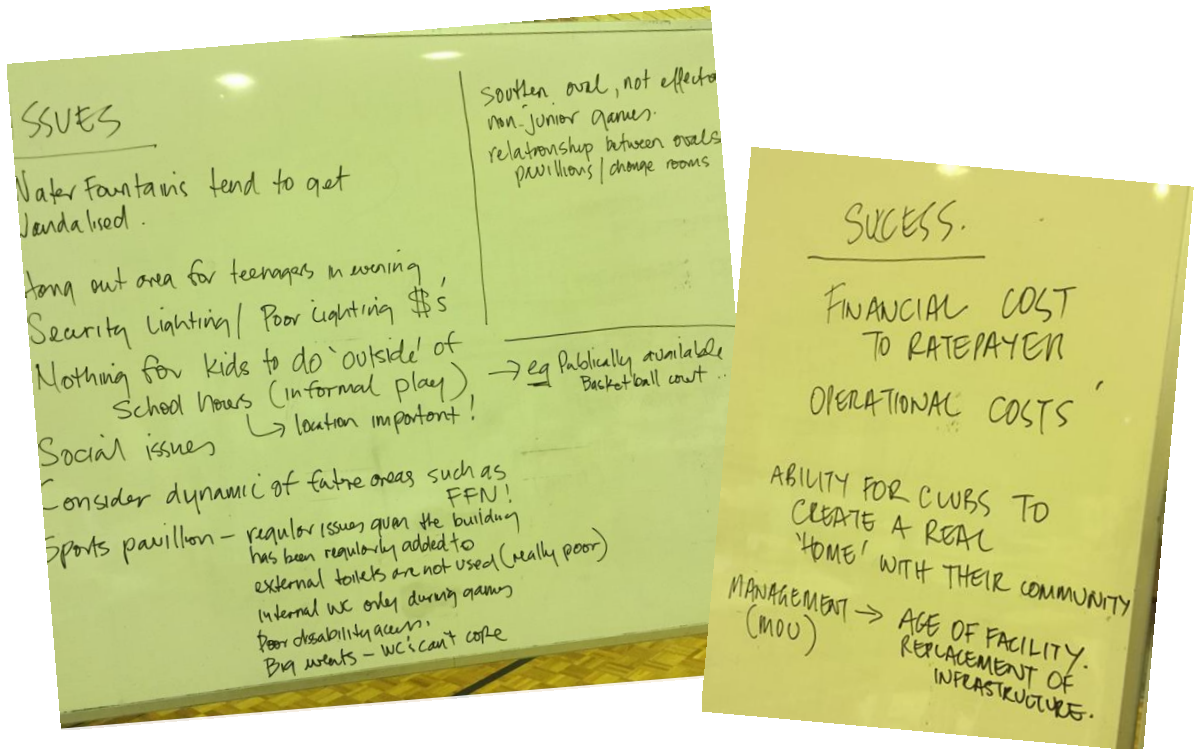 ISSUES
Water Fountains tend to get
Vandalised.
Hang out area for teenagers in evening
Security Lighting / Poor Lighting $$'s
Nothing for kids to do 'outside' of
School hours (informal play)
↳ location important!
→ eg Publically available
Basketball court ..
Social issues
Consider dynamic of future areas such as
FFN!
Sports pavillion – regular issues given the building
has been regularly added to
external toilets are not used (really poor)
internal WC only during games
Poor disability access.
Big events – WC's can't cope
Southen oval, not effecti
non-junior games.
relationship between ovals
pavillions / change rooms
SUCESS.
FINANCIAL COST
TO RATEPAYER
OPERATIONAL COSTS
ABILITY FOR CLUBS TO
CREATE A REAL
'HOME' WITH THEIR COMMUNITY
MANAGEMENT → AGE OF FACILITY.
(MOU) REPLACEMENT OF
INFRASTRUCTURE.